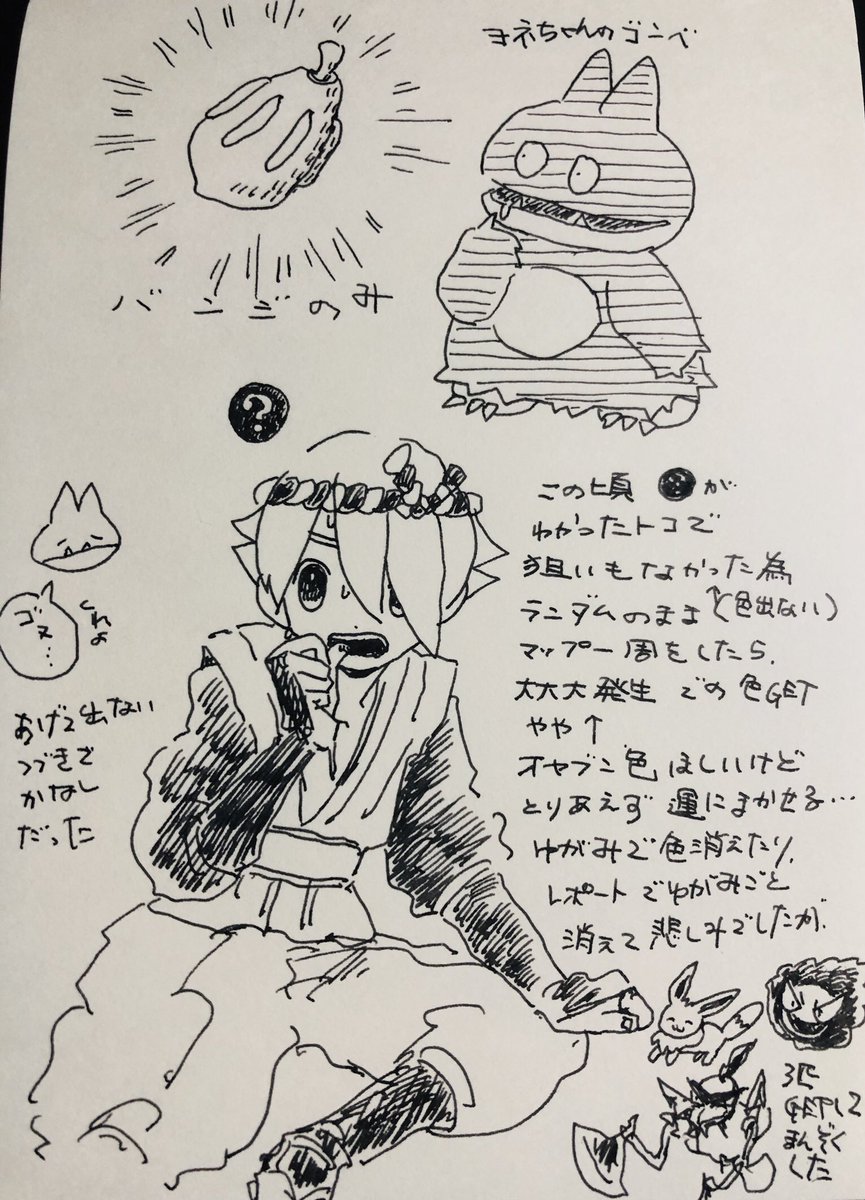 ヨネちゃんのゴンベ
バンジのみ
?
この頃 ? が
わかったトコで
狙いもなかった為
ランダムのまま(色出ない)
マップ一周をしたら、
大大大発生 での色GET
やや↑
オヤブン色ほしいけど
とりあえず運にまかせる…
ゆがみで色消えたり、
レポートでゆがみごと
消えて悲しみでしたが、
3匹
GETして
まんぞく
した
ゴヌ…
くれよ
あげて出ない
つづきで
かなし
だった